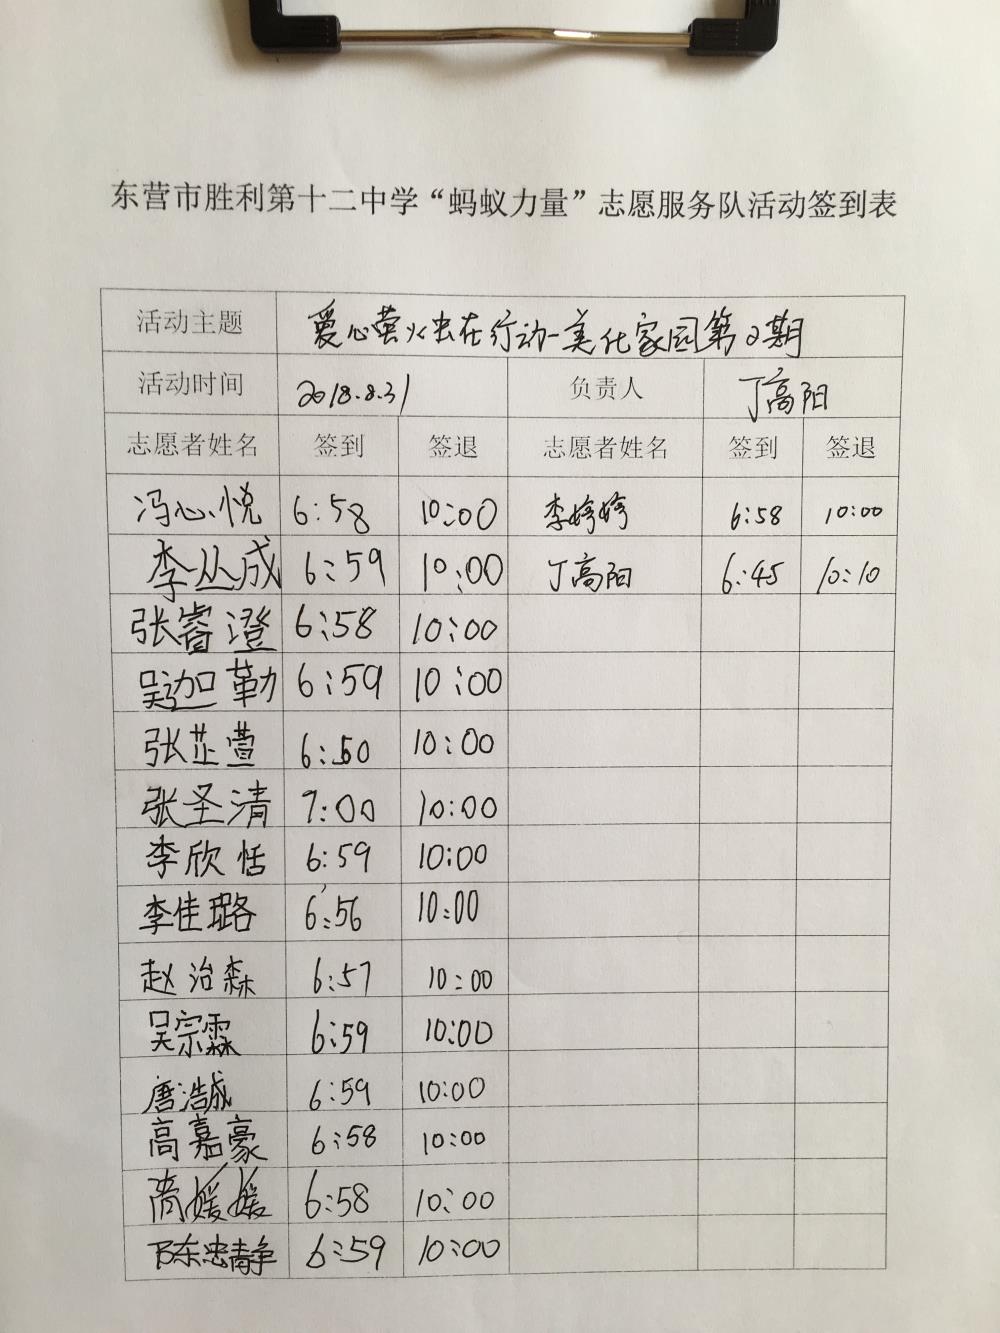 东营市胜利第十二中学“蚂蚁力量”志愿服务队活动签到表
活动主题 爱心萤火虫在行动-美化家园第2期
活动时间 2018.8.31 负责人 丁高阳
志愿者姓名 签到 签退 志愿者姓名 签到 签退
冯心悦 6:58 10:00 李婷婷 6:58 10:00
李丛成 6:59 10:00 丁高阳 6:45 10:10
张睿澄 6:58 10:00
吴迦勤 6:59 10:00
张芷萱 6:50 10:00
张圣清 7:00 10:00
李欣恬 6:59 10:00
李佳璐 6:56 10:00
赵治森 6:57 10:00
吴宗霖 6:59 10:00
唐浩诚 6:59 10:00
高嘉豪 6:58 10:00
商媛媛 6:58 10:00
陈忠静 6:59 10:00